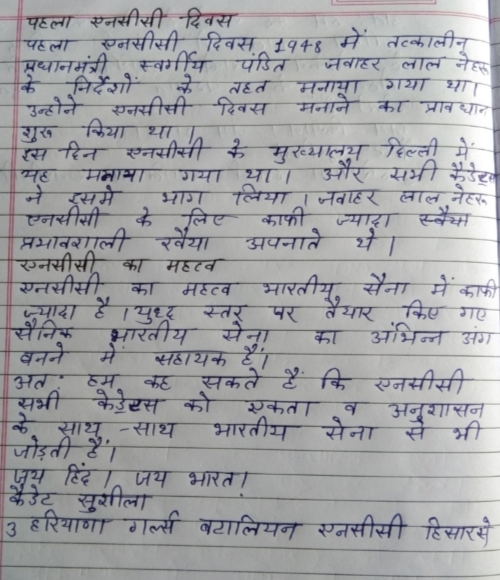 पहला एनसीसी दिवस
पहला एनसीसी दिवस 1948 में तत्कालीन
प्रधानमंत्री स्वर्गीय पंडित जवाहर लाल नेहरू
के निर्देशों के तहत मनाया गया था।
उन्होने एनसीसी दिवस मनाने का प्रावधान
शुरू किया था।
इस दिन एनसीसी के मुख्यालय दिल्ली में
यह मनाया गया था। और सभी कैडेटस
ने इसमे भाग लिया। जवाहर लाल नेहरू
एनसीसी के लिए काफी ज्यादा स्वैया
प्रभावशाली रवैया अपनाते थे।
एनसीसी का महत्व
एनसीसी का महत्व भारतीय सैना में काफी
ज्यादा है। युध्द स्तर पर तैयार किए गए
सैनिक भारतीय सेना का अंभिन्न अंग
बनने में सहायक हैं।
अत: हम कह सकते हैं कि एनसीसी
सभी केडेटस को एकता व अनुशासन
के साथ-साथ भारतीय सेना से भी
जोड़ती है।
जय हिंद। जय भारत।
कैडेट सुशीला
3 हरियाणा गर्ल्स बटालियन एनसीसी हिसारसे